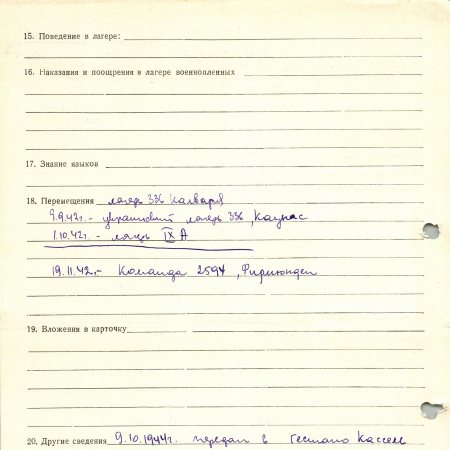 15. Поведение в лагере:
16. Наказания и поощрения в лагере военнопленных
17. Знание языков
18. Перемещения лагерь 336 Калвария
9.9.42г.- лагерь 336, Каунас
1.10.42г. - лагерь IX A
19.11.42.- Команда 2594,
19. Вложения в карточку
20. Другие сведения 9.10.1944г. передан в гестапо Кассель